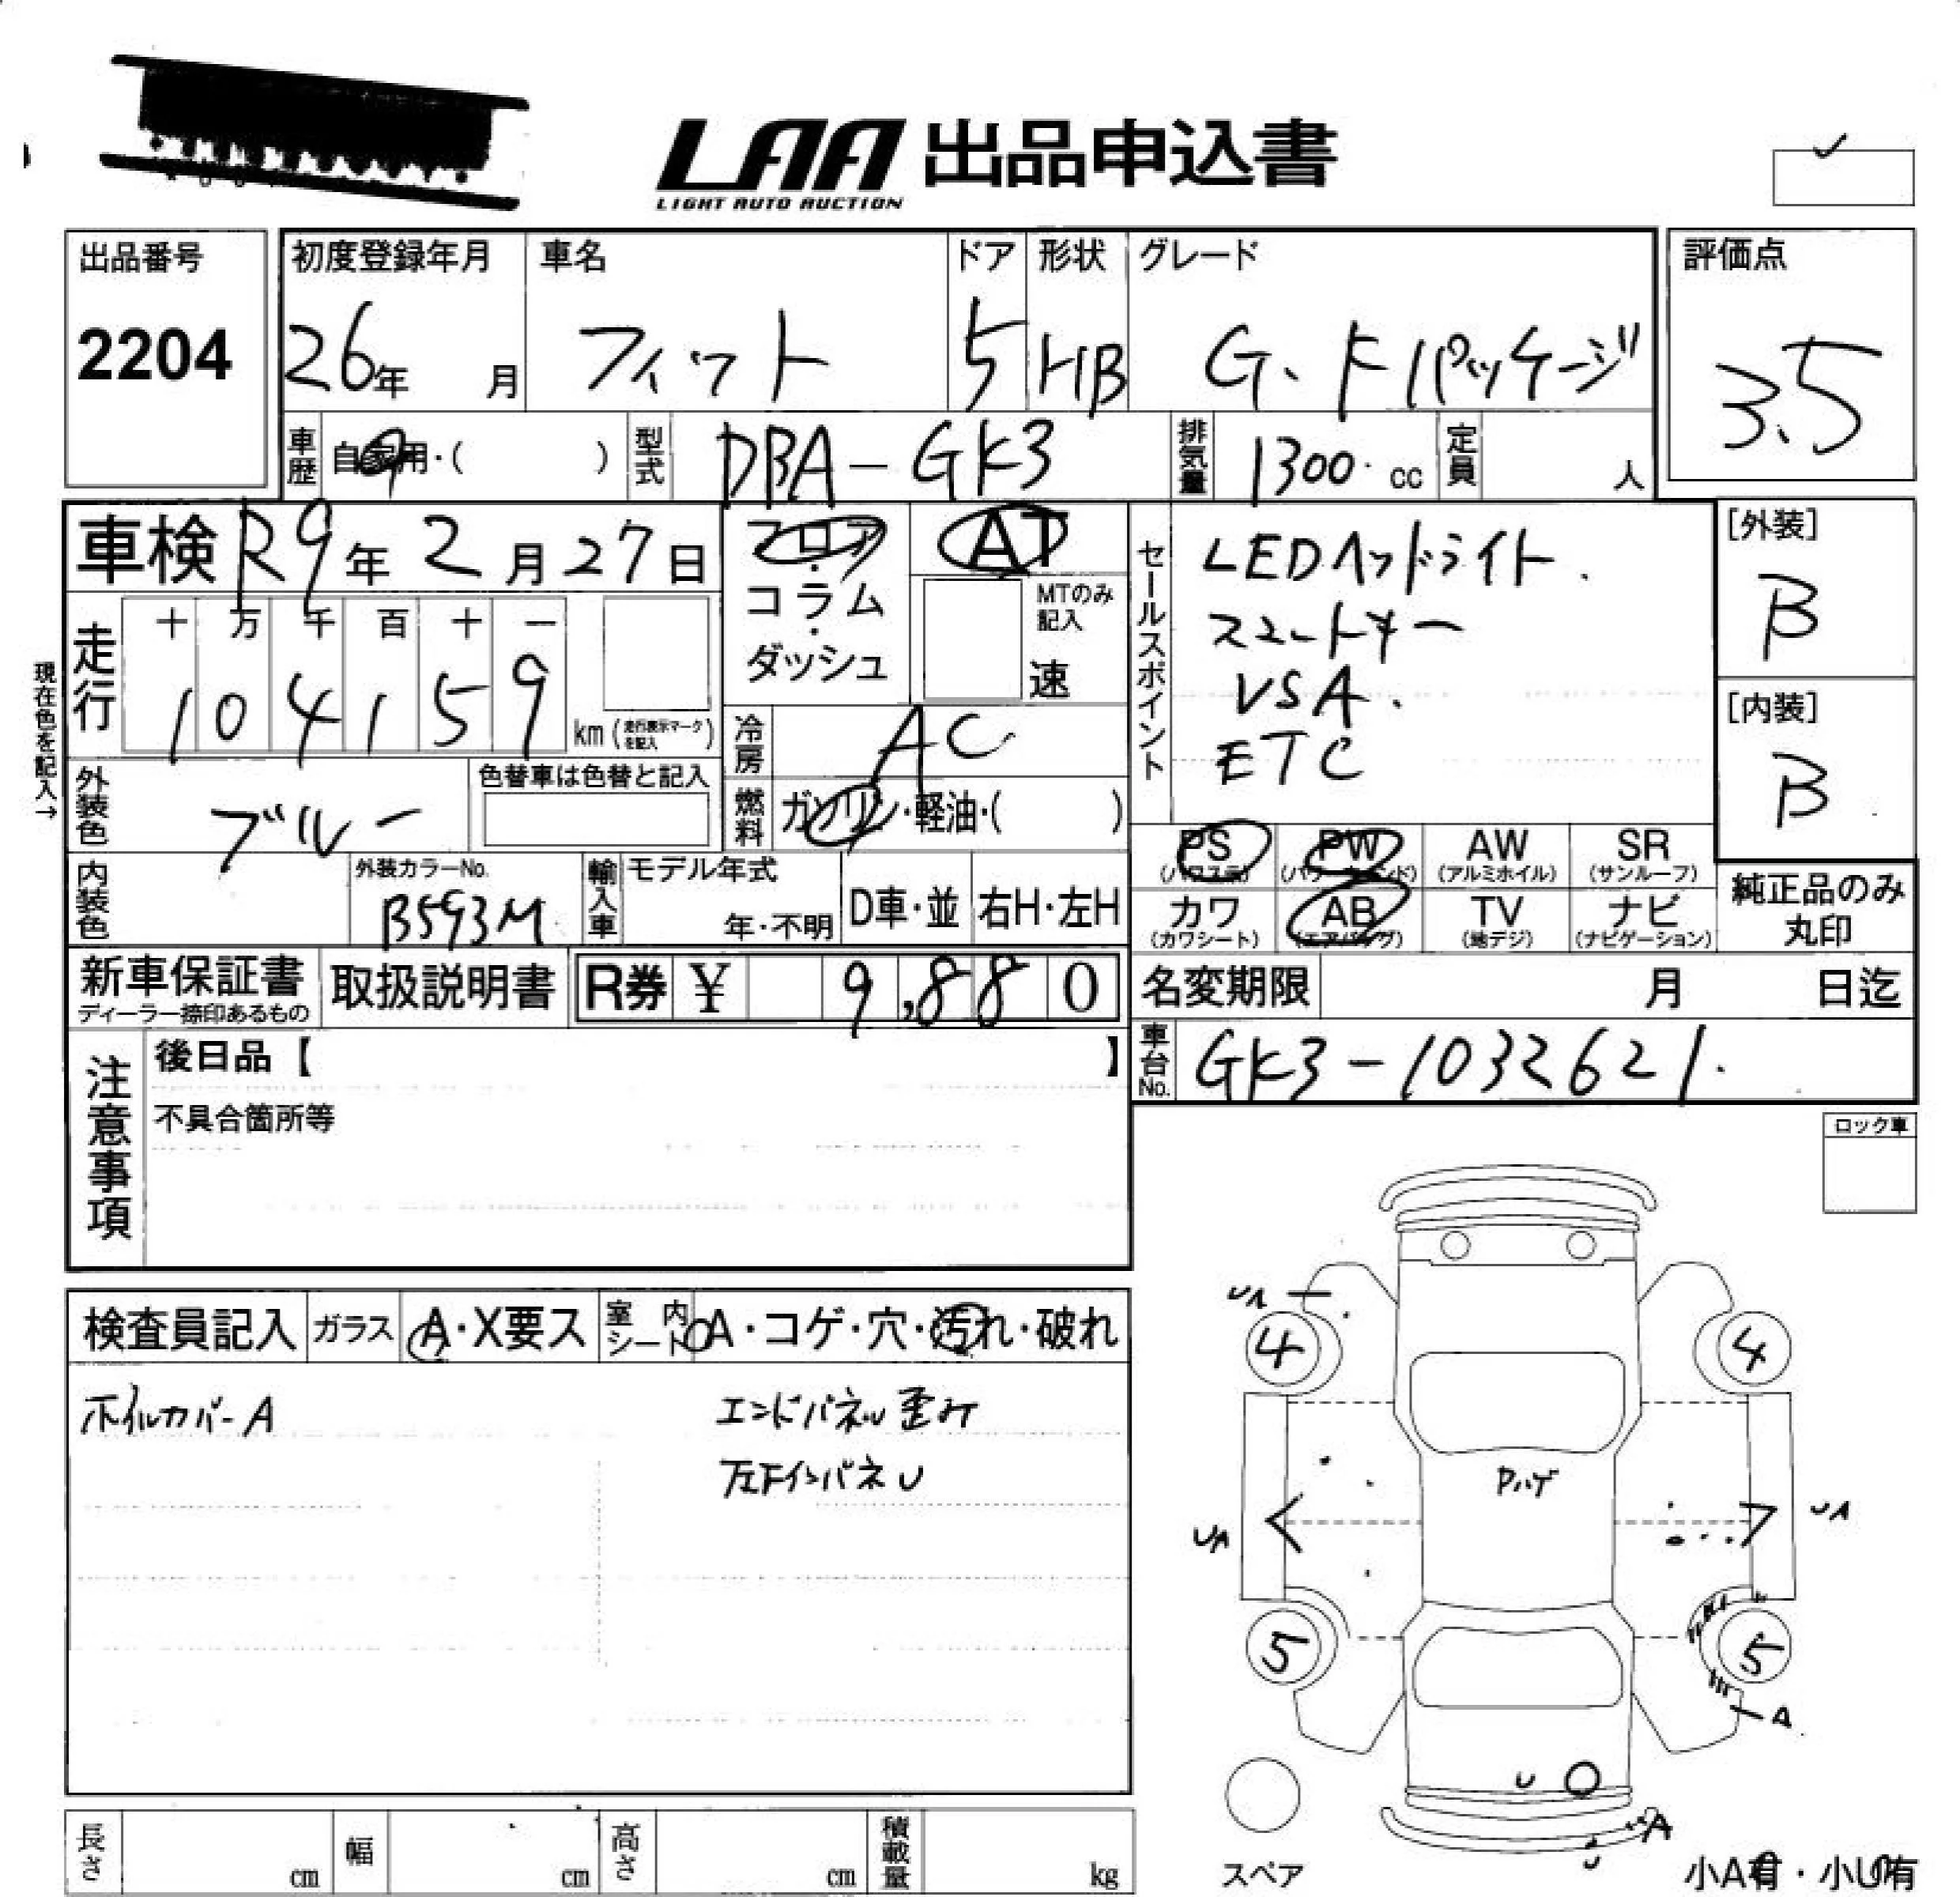 LAA 出品申込書
LIGHT AUTO AUCTION
出品番号
2204
初度登録年月
26年 月
車名
フィット
ドア
5
形状
HB
グレード
G、Fパッケージ
評価点
3.5
車歴 自家用・( )
型式 DBA-GK3
排気量 1300 cc
定員 人
車検 R9年2月27日
フロア・コラム・ダッシュ
AT
MTのみ記入
速
セールスポイント
LEDヘッドライト.
スマートキー
VSA.
ETC
[外装]
B
[内装]
B
現在色を記入→
走行
十 万 千 百 十 一
1 0 4 1 5 9
km(走行表示マークを記入)
冷房 AC
燃料 ガソリン・軽油・( )
外装色 ブルー
色替車は色替と記入
内装色
外装カラーNo.
B593M
輸入車
モデル年式
年・不明
D車・並
右H・左H
PS (パワステ)
PW (パワーウィンド)
AW (アルミホイル)
SR (サンルーフ)
カワ (カワシート)
AB (エアバック)
TV (地デジ)
ナビ (ナビゲーション)
純正品のみ丸印
新車保証書
ディーラー捺印あるもの
取扱説明書
R券 ¥ 9,880
名変期限 月 日迄
車台No. GK3-1032621.
注意事項
後日品【 】
不具合箇所等
ロック車
検査員記入
ガラス A・X要ス
室内シート A・コゲ・穴・汚れ・破れ
ホイルカバーA
エンドパネル歪み
左FインパネU
UA
4
4
Pハゲ
UA
UA
5
5
A
U
A
U
スペア
小A有・小U有
長さ cm
幅 cm
高さ cm
積載量 kg